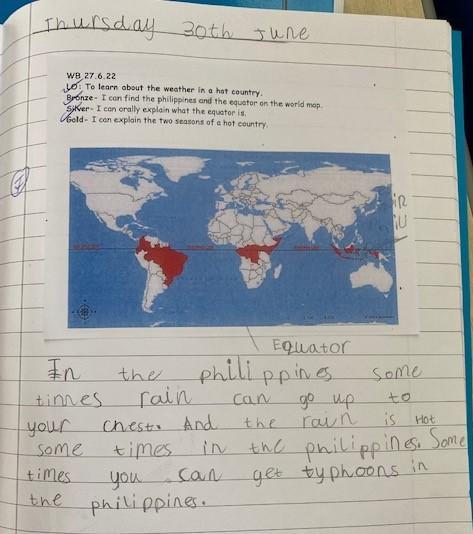 Thursday 30th June
WB 27.6.22
LO: To learn about the weather in a hot country.
Bronze- I can find the philippines and the equator on the world map.
Silver- I can orally explain what the equator is.
Gold- I can explain the two seasons of a hot country.
Equator
In the philippines some
times rain can go up to
your chest. And the rain is Hot
some times in the philippines. Some
times you can get typhoons in
the philippines.